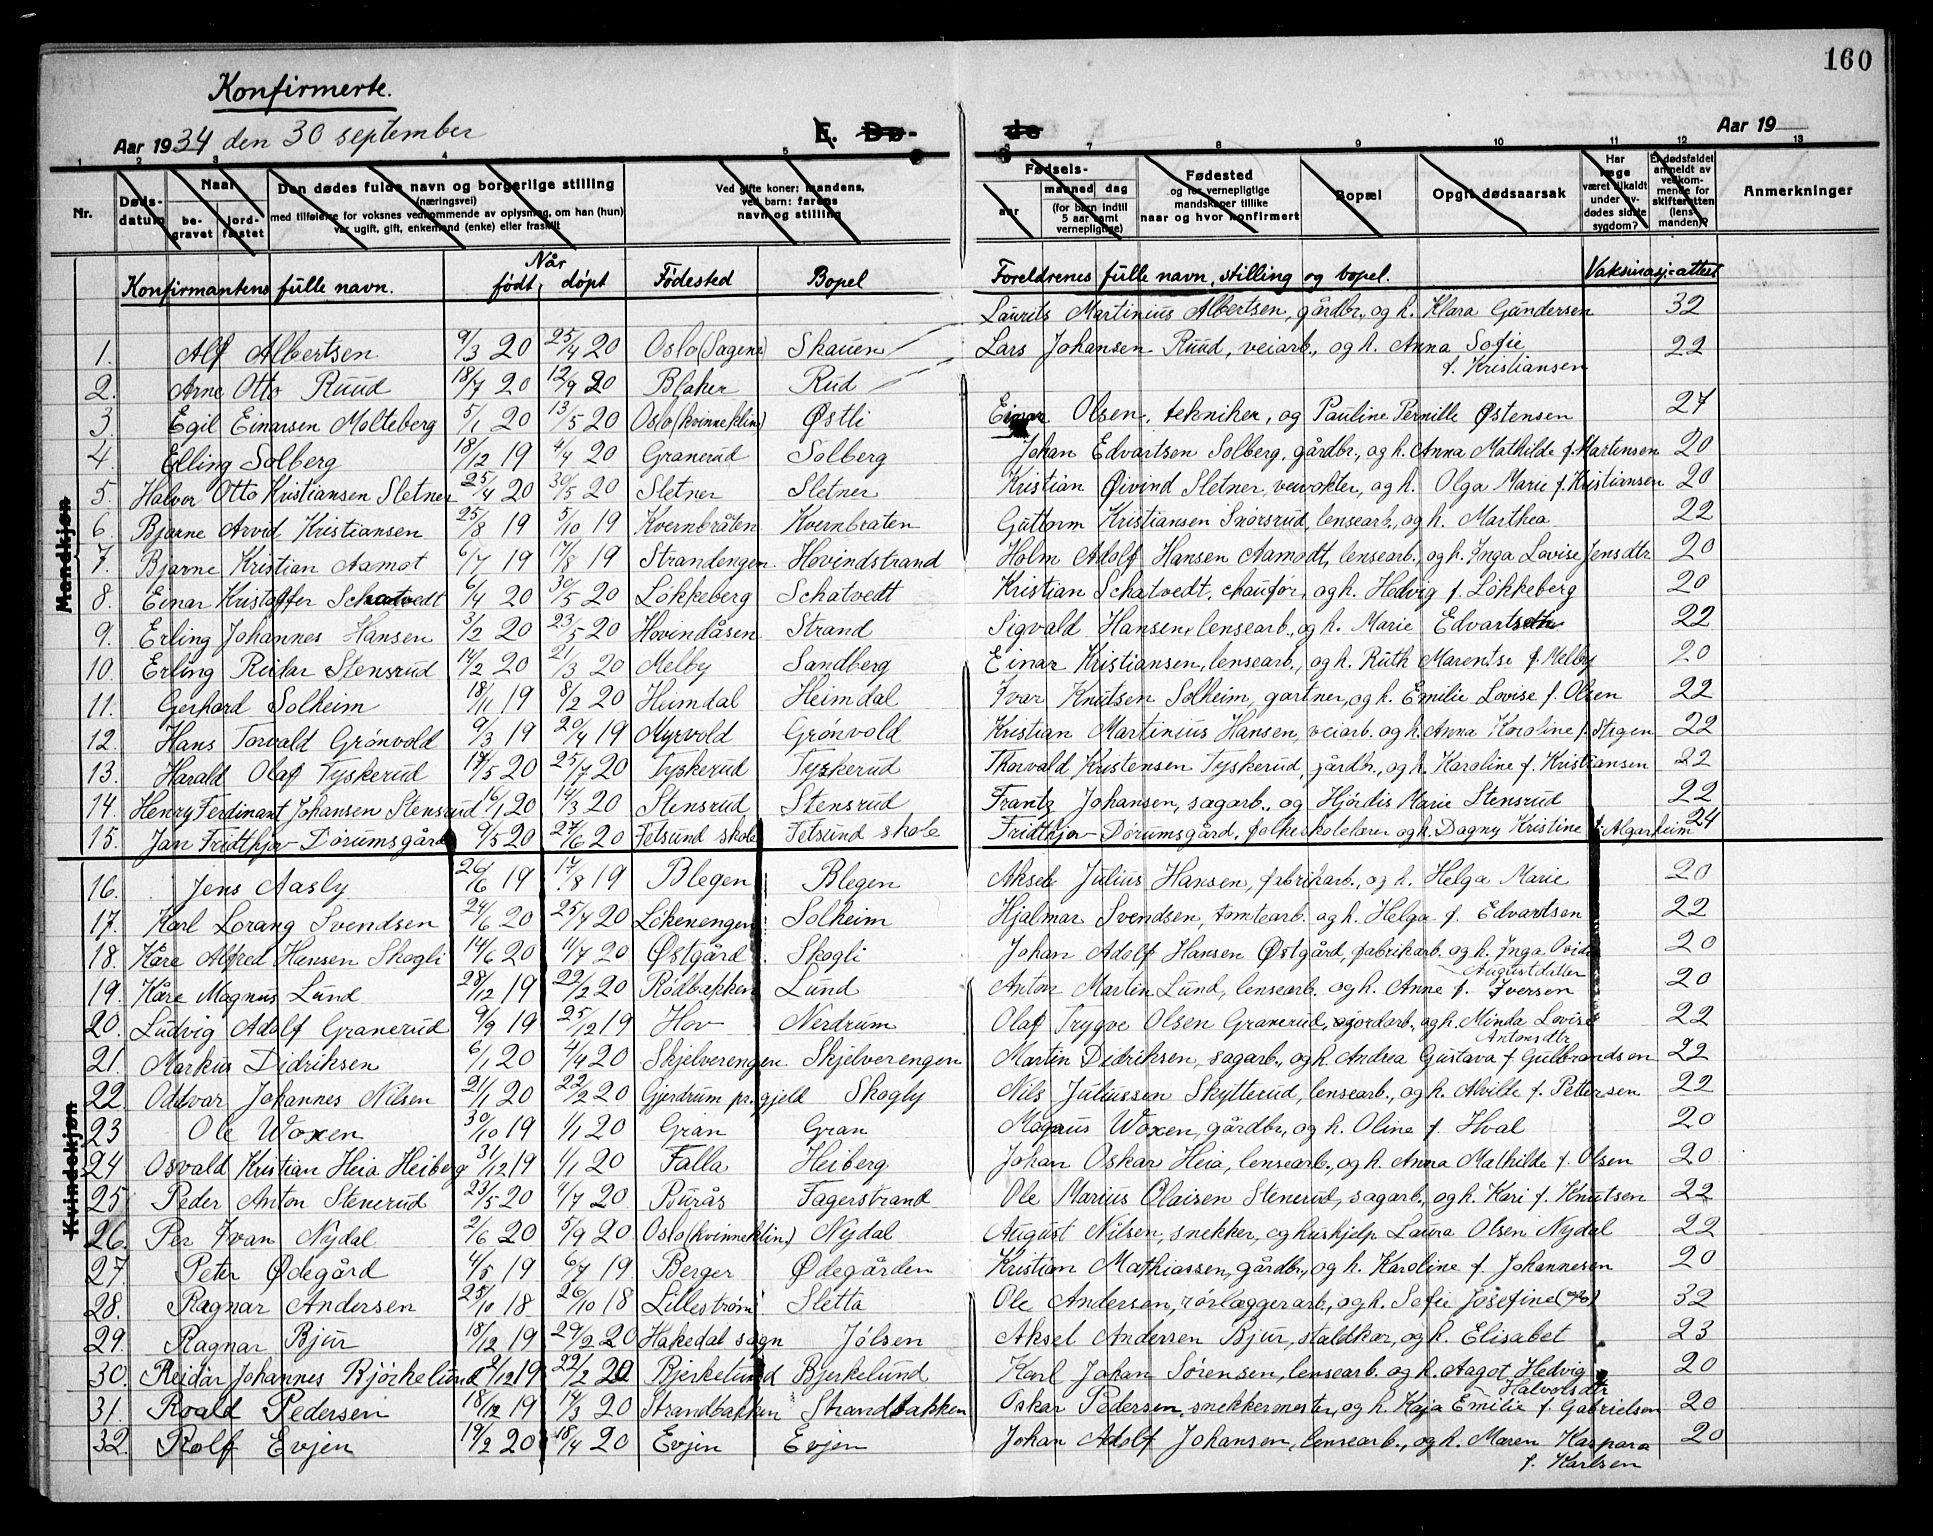 160
Konfirmerte.
Aar 1934 den 30 september
E. Dø-
de
Aar 19
1 2 3 4 5 6 7 8 9 10 11 12 13
Nr.
Døds-datum
Naar
be-gravet
jord-fæstet
Den dødes fulde navn og borgerlige stilling
(næringsvei)
med tilføielse for voksnes vedkommende av oplysning, om han (hun)
var ugift, gift, enkemand (enke) eller fraskilt
Ved gifte koner: mandens,
ved barn: farens
navn og stilling
Fødsels-
aar
maaned
dag
(for barn indtil
5 aar samt
vernepligtige)
Fødested
og for vernepligtige
mandskaper tillike
naar og hvor konfirmert
Bopæl
Opgit dødsaarsak
Har læge været tilkaldt under av-dødes sidste sygdom?
Er dødsfaldet anmeldt av vedkom-mende for skifteretten (lens-manden)?
Anmerkninger
Konfirmantens fulle navn. Når født, døpt Fødested Bopel Foreldrenes fulle navn, stilling og bopel. Vaksinasj.-attest
Mandkjøn
1. Alf Albertsen 9/3 20 25/4 20 Oslo (Sagene) Skauen Laurits Martinius Albertsen, gårdbr., og h. Klara Gundersen 32
2. Arne Otto Ruud 18/7 20 12/9 20 Blaker Rud Lars Johansen Ruud, veiarb., og h. Anna Sofie 22
f. Kristiansen
3. Egil Einarsen Molteberg 5/1 20 13/5 20 Oslo (kvinneklin) Østli Einar Olsen, tekniker, og Pauline Pernille Østensen 27
4. Elling Solberg 18/12 19 4/4 20 Granerud Solberg Johan Edvartsen Solberg, gårdbr., og h. Anna Mathilde f. Martinsen 20
5. Halvor Otto Kristiansen Sletner 25/4 20 30/5 20 Sletner Sletner Kristian Øivind Sletner, veivokter, og h. Olga Marie f. Kristiansen 20
6. Bjarne Arvid Kristiansen 25/8 19 5/10 19 Kvernbråten Kvernbraten Guttorm Kristiansen Snorsrud, lensearb., og h. Marthea 22
7. Bjarne Kristian Aamot 6/7 19 17/8 19 Strandengen Hovindstrand Holm Adolf Hansen Aamodt, lensearb., og h. Inga Lovise Jensdtr 20
8. Einar Kristoffer Schatvedt 6/4 20 30/5 20 Løkkeberg Schatvedt Kristian Schatvedt, chaufør, og h. Hedvig f. Løkkeberg 20
9. Erling Johannes Hansen 3/2 20 23/5 20 Hovindåsen Strand Sigvald Hansen, lensearb., og h. Marie Edvartsen 22
10. Erling Reidar Stensrud 14/2 20 21/3 20 Melby Sandberg Einar Kristiansen, lensearb., og h. Ruth Marentse f. Melby 20
11. Gerhard Solheim 18/11 19 8/2 20 Heimdal Heimdal Ivar Knutsen Solheim, gartner, og h. Emilie Lovise f. Olsen 22
12. Hans Torvald Grønvold 9/3 19 20/4 19 Myrvold Grønvold Kristian Martinius Hansen, veiarb. og h. Anna Karoline f. Stigen 22
13. Harald Olaf Tyskerud 14/5 20 25/7 20 Tyskerud Tyskerud Thorvald Kristensen Tyskerud, gårdbr., og h. Karoline f. Kristiansen 22
14. Henry Ferdinant Johansen Stensrud 16/1 20 14/3 20 Stensrud Stensrud Frantz Johansen, sagarb., og Hjørdis Marie Stensrud 22
15. Jan Fridthjov Dørumsgård 9/5 20 27/6 20 Fetsund skole Fetsund skole Fridthjov Dørumsgård, folkeskolelærer og h. Dagny Kristine f. Algarheim 24
Kvindekjøn
16. Jens Aasly 26/6 19 17/8 19 Blegen Blegen Aksel Julius Hansen, fabrikarb., og h. Helga Marie 20
17. Karl Lorang Svendsen 24/6 20 25/7 20 Løkenengen Solheim Hjalmar Svendsen, tomtearb. og h. Helga f. Edvartsen 22
18. Kåre Alfred Hansen Skogli 14/6 20 11/7 20 Østgård Skogli Johan Adolf Hansen Østgård, fabrikarb. og h. Inga Ovidia 20
Augustdatter
19. Kåre Magnus Lund 28/12 19 22/2 20 Rødbakken Lund Anton Martin Lund, lensearb. og h. Anne f. Iversen 20
20. Ludvig Adolf Granerud 9/9 19 25/12 19 Hov Nerdrum Olaf Trygve Olsen Granerud, jordarb., og h. Minda Lovise 22
Antonsdtr
21. Markus Didriksen 6/1 20 4/4 20 Skjelverengen Skjelverengen Martin Didriksen, sagarb., og h. Andrea Gustava f. Gulbrandsen 22
22. Oddvar Johannes Nilsen 21/1 20 22/2 20 Gjerdrum pr.gjeld Skogly Nils Juliussen Skytterud, lensearb., og h. Alvilde f. Pettersen 22
23 Ole Woxen 30/10 19 1/1 20 Gran Gran Magnus Woxen, gårdbr., og h. Oline f. Hval 20
24 Osvald Kristian Heia Heiberg 31/12 19 1/1 20 Falla Heiberg Johan Oskar Heia, lensearb., og h. Anna Mathilde f. Olsen 20
25 Peder Anton Stenerud 23/5 20 4/7 20 Burås Fagerstrand Ole Marius Olaisen Stenerud, sagarb., og h. Kari f. Knutsen 22
26. Per Ivan Nydal 2/6 20 5/9 20 Oslo (kvinneklin.) Nydal August Nilsen, snekker, og hushjelp Laura Olsen Nydal 22
27. Peter Ødegård 4/5 19 6/7 19. Berger Ødegården Kristian Mathiassen, gårdbr., og h. Karoline f. Johannesen 20
28. Ragnar Andersen 25/10 18 26/10 18 Lillestrøm Sletta Ole Andersen, rørlæggerarb., og h. Sofie Josefine 32
29. Ragnar Bjur 18/12 19 29/2 20 Hakedal sogn Jølsen Aksel Andersen Bjur, staldkar, og h. Elisabet 23
30. Reidar Johannes Bjørkelund 2/12 19 22/2 20 Bjerkelund Bjerkelund Karl Johan Sørensen, lensearb. og h. Aagot Hedvig 20
Halvorsdtr
31. Roald Pedersen 18/12 19 14/3 20 Strandbakken Strandbakken Oskar Pedersen, snekkermester, og h. Kaja Emilie f. Gabrielsen 20
32. Rolf Evjen 19/2 20 18/4 20 Evjen Evjen Johan Adolf Johansen, lensearb., og h. Maren Kaspara 20
f. Karlsen